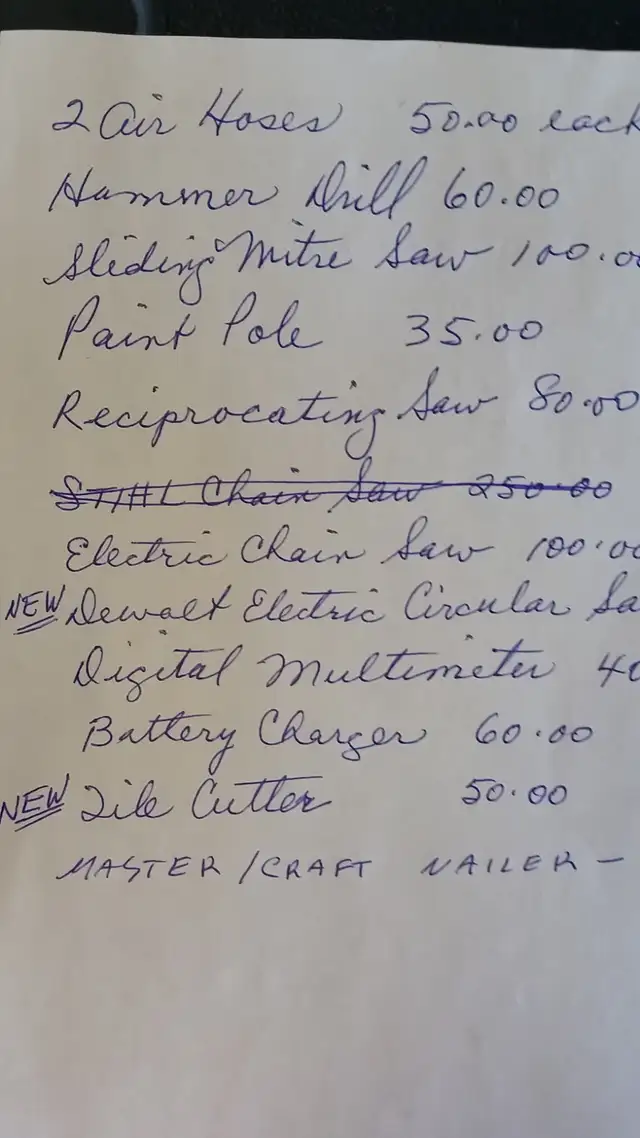 2 Air Hoses 50.00 each
Hammer Drill 60.00
Sliding Mitre Saw 100.00
Paint Pole 35.00
Reciprocating Saw 80.00
STIHL Chain Saw 250.00
Electric Chain Saw 100.00
NEW Dewalt Electric Circular Sa
Digital Multimeter 40
Battery Charger 60.00
NEW Tile Cutter 50.00
MASTER/CRAFT NAILER –